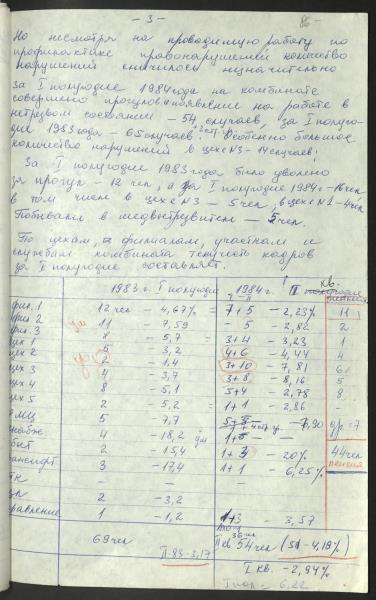 - 3 -
Но несмотря на проводимую работу по
профилактике правонарушений количество
нарушений снизилось незначительно
За I полугодие 1984 года на комбинате
совершено прогулов и появление на работе в
нетрезвом состоянии - 54 случаев, за I полуго-
дие 1983 года - 65 случаев. Особенно большое
количество нарушений в цехе № 3 - 14 случаев!
За I полугодие 1983 года было уволено
за прогул - 12 чел, а за I полугодие 1984 г. - 16 чел
в том числе в цехе № 3 - 5 чел, в цехе № 2 - 4 чел
Побывали в медвытрезвителе - 5 чел.
По цехам, филиалам, участкам и
службам комбината текучесть кадров
за I полугодие составляет.
1983 г. I полугодие 1984 г. II кв.
фил. 1 12 чел - 4,67% = 7+5 - 2,23% 11
фил. 2 11 - 7,59 - 5 - 2,82 2
фил. 3 8 - 5,7 3+4 - 3,23 1
цех 1 5 - 3,2 4+6 - 4,44 4
цех 2 2 - 1,4 3+10 - 7,81 6
цех 3 4 - 3,7 3+8 - 8,16 5
цех 4 8 - 5,1 5+4 - 2,78 8
цех 5 2 - 5,2 = 1+1 - 2,86 -
РМЦ 5 - 7,7 7,90
снабж. 4 - 18,2 1+5 - -
быт 2 - 15,4 1+3 - 20% 44 чел
транспорт 3 - 17,4 1+1 - 6,25% пенсия
2 - 3,2
управление 1 - 1,2 1+3 - 3,57
69 чел II кв 54 чел (54 - 4,19%)
II-83-3,17 I кв. - 2,94%